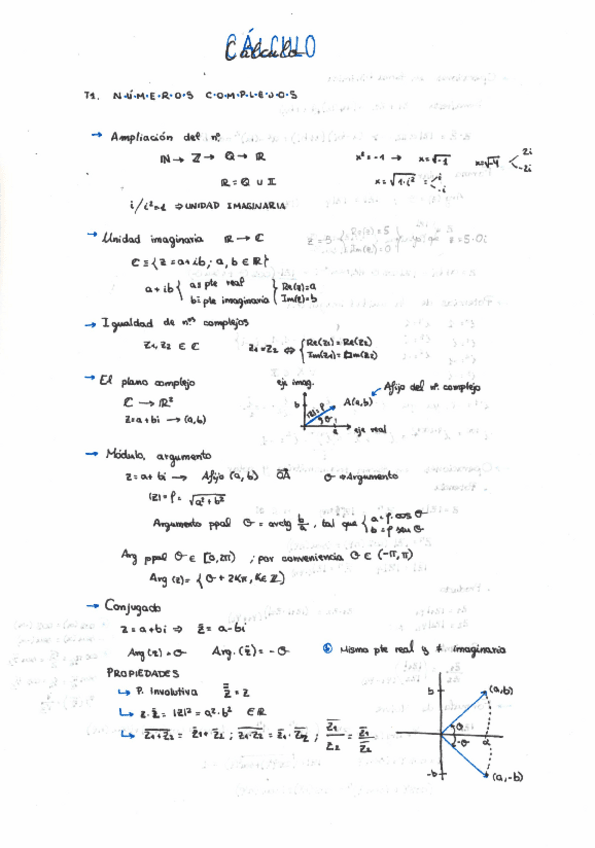 CÁLCULO
Cálculo
T1. N·Ú·M·E·R·O·S C·O·M·P·L·E·J·O·S
→ Ampliación del nº
ℕ → ℤ → ℚ → ℝ x² = -1 → x = √-1 x = √-4 < 2i -2i
ℝ = ℚ ∪ 𝕀 x = √1·i² = < i -i
i / i² = -1 ⇒ UNIDAD IMAGINARIA
→ Unidad imaginaria ℝ → ℂ
ℂ ≡ { z = a + ib ; a, b ∈ ℝ }
a + ib { a ≡ pte real { Re(z) = a
bi pte imaginaria Im(z) = b
→ Igualdad de nºs complejos
z1, z2 ∈ ℂ z1 = z2 ⇔ { Re(z1) = Re(z2)
Im(z1) = Im(z2)
→ El plano complejo eje imag. Afijo del nº. complejo
ℂ → ℝ² b |z| = ρ A(a,b)
z = a + bi → (a,b) θ a eje real
→ Módulo, argumento
z = a + bi → Afijo (a,b) OA θ → Argumento
|z| = ρ = √a² + b²
Argumento ppal θ = arctg b/a , tal que { a = ρ·cos θ
b = ρ sen θ
Arg ppal θ ∈ [0, 2π) ; por conveniencia θ ∈ (-π, π)
Arg (z) = { θ + 2kπ, k ∈ ℤ }
→ Conjugado
z = a + bi ⇒ z̄ = a - bi
Arg (z) = θ Arg. (z̄) = -θ Misma pte real y ≠ imaginaria
PROPIEDADES
↳ P. Involutiva z̿ = z b (a,b)
↳ z·z̄ = |z|² = a²·b² ∈ ℝ θ
-θ a
↳ z̅1̅+̅z̅2̅ = z̄1 + z̄2 ; z̅1̅·̅z̅2̅ = z̄1 · z̄2 ; z̅1̅/z2 = z̄1/z̄2
-b (a,-b)